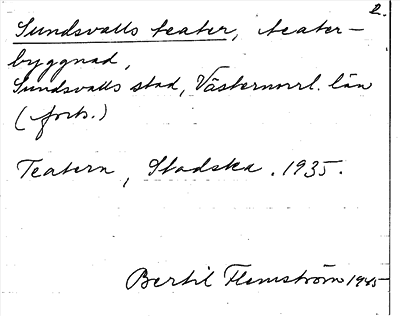 2.
Sundsvalls teater, teater-
byggnad,
Sundsvalls stad, Västernorrl. län
(forts.)
Teatern, Stadska. 1935.
Bertil Flemström 1945